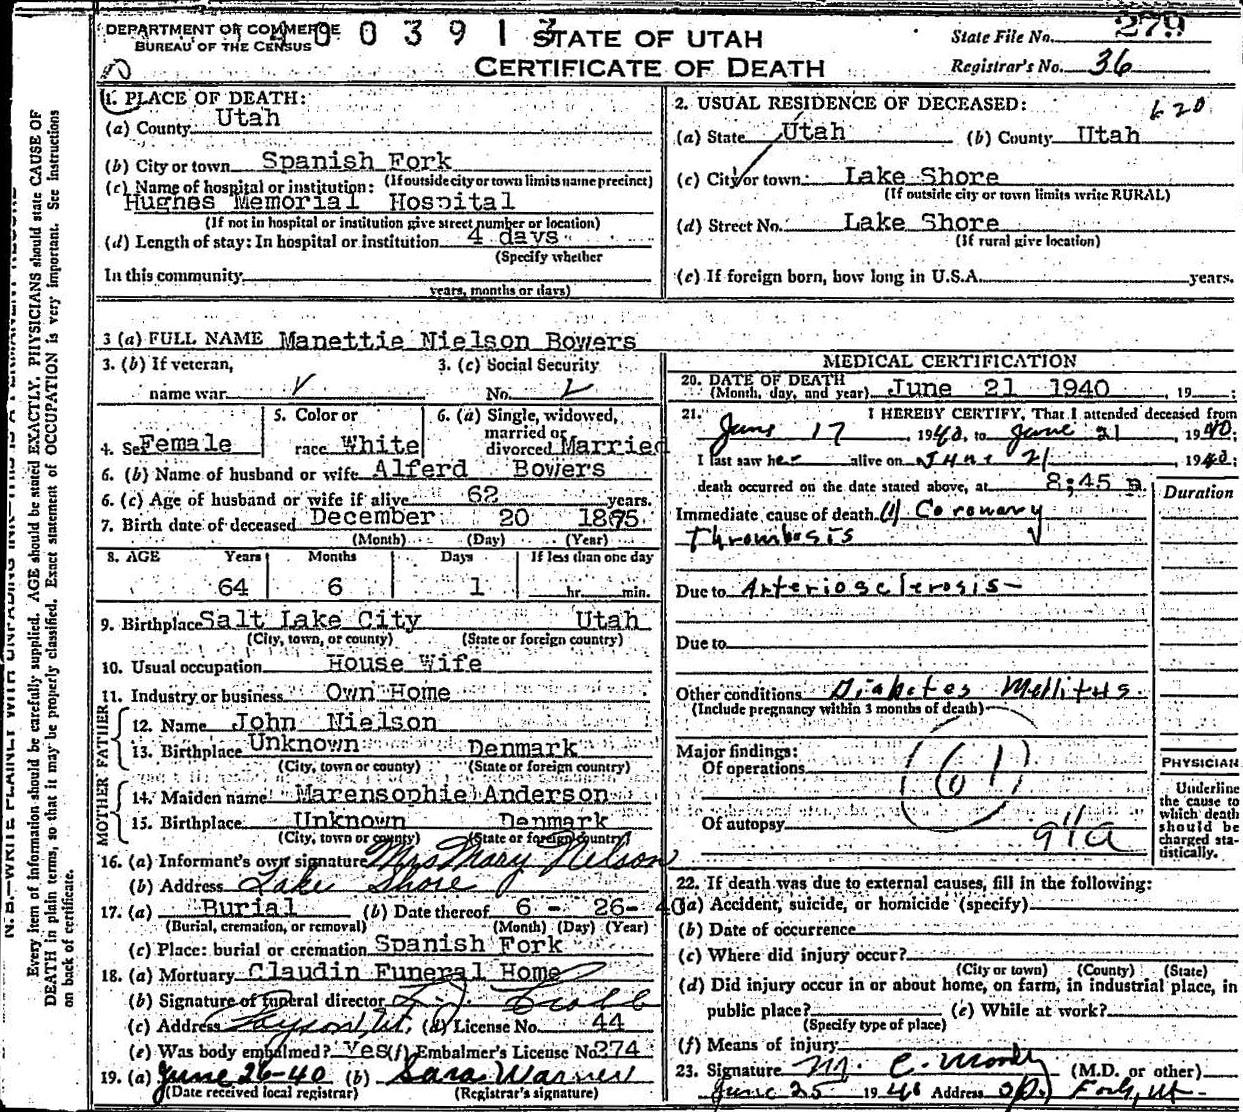 DEPARTMENT OF COMMERCE
BUREAU OF THE CENSUS
4003913
STATE OF UTAH
CERTIFICATE OF DEATH
State File No. 279
Registrar's No. 36
1. PLACE OF DEATH:
(a) County Utah
(b) City or town Spanish Fork
(If outside city or town limits name precinct)
(c) Name of hospital or institution:
Hughes Memorial Hospital
(If not in hospital or institution give street number or location)
(d) Length of stay: In hospital or institution 4 days
(Specify whether
In this community
years, months or days)
2. USUAL RESIDENCE OF DECEASED:
620
(a) State Utah (b) County Utah
(c) City or town: Lake Shore
(If outside city or town limits write RURAL)
(d) Street No. Lake Shore
(If rural give location)
(e) If foreign born, how long in U.S.A. years.
3 (a) FULL NAME Manettie Nielson Bowers
3. (b) If veteran,
name war
3. (c) Social Security
No.
4. Sex Female
5. Color or
race White
6. (a) Single, widowed,
married or
divorced Married
6. (b) Name of husband or wife Alferd Bowers
6. (c) Age of husband or wife if alive 62 years.
7. Birth date of deceased December 20 1875
(Month) (Day) (Year)
8. AGE Years Months Days If less than one day
64 6 1 hr. min.
9. Birthplace Salt Lake City Utah
(City, town, or county) (State or foreign country)
10. Usual occupation House Wife
11. Industry or business Own Home
FATHER
12. Name John Nielson
13. Birthplace Unknown Denmark
(City, town or county) (State or foreign country)
MOTHER
14. Maiden name Marensophie Anderson
15. Birthplace Unknown Denmark
(City, town or county) (State or foreign country)
16. (a) Informant's own signature Mrs Mary Nelson
(b) Address Lake Shore
17. (a) Burial (b) Date thereof 6 - 26- 40
(Burial, cremation, or removal) (Month) (Day) (Year)
(c) Place: burial or cremation Spanish Fork
18. (a) Mortuary Claudin Funeral Home
(b) Signature of funeral director
(c) Address Payson Ut. (d) License No. 44
(e) Was body embalmed? Yes (f) Embalmer's License No. 274
19. (a) June 26-40 (b) Sara Warner
(Date received local registrar) (Registrar's signature)
MEDICAL CERTIFICATION
20. DATE OF DEATH
(Month, day, and year) June 21 1940, 19 ;
21. I HEREBY CERTIFY, That I attended deceased from
June 17, 1940, to June 21, 1940;
I last saw her alive on June 21, 1940;
death occurred on the date stated above, at 8;45 p.
Duration
Immediate cause of death (1) Coronary
Thrombosis
Due to Arteriosclerosis-
Due to
Other conditions Diabetes Mellitus
(Include pregnancy within 3 months of death)
61
Major findings:
Of operations
Of autopsy
94a
PHYSICIAN
Underline
the cause to
which death
should be
charged sta-
tistically.
22. If death was due to external causes, fill in the following:
(a) Accident, suicide, or homicide (specify)
(b) Date of occurrence
(c) Where did injury occur?
(City or town) (County) (State)
(d) Did injury occur in or about home, on farm, in industrial place, in
public place? (e) While at work?
(Specify type of place)
(f) Means of injury
23. Signature M. C. Moody (M.D. or other)
June 25 1940 Address Sp. Fork, Ut-
Every item of information should be carefully supplied. AGE should be stated EXACTLY. PHYSICIANS should state CAUSE OF
DEATH in plain terms, so that it may be properly classified. Exact statement of OCCUPATION is very important. See instructions
on back of certificate.